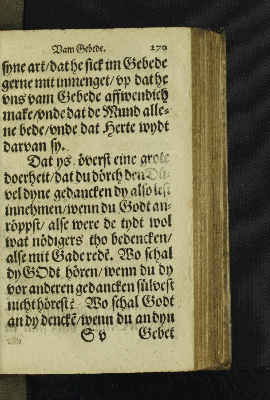 Vam Gebede. 270
syne art/dat he sick im Gebede
gerne mit inmenget/vp dat he
vns vam Gebede affwendich
make/vnde dat de Mund alle-
ne bede/vnde dat Herte wydt
darvan sy.
Dat ys överst eine grote
doerheit/dat du dörch den Dü-
vel dyne gedancken dy also lest
innehmen/wenn du Godt an-
röppst/alse were de tydt wol
wat nödigers tho bedencken/
alse mit Gade redē. Wo schal
dy GOdt hören/wenn du dy
vor anderen gedancken sülvest
nicht hörest? Wo schal Godt
an dy denckē/wenn du an dyn
S v Gebet